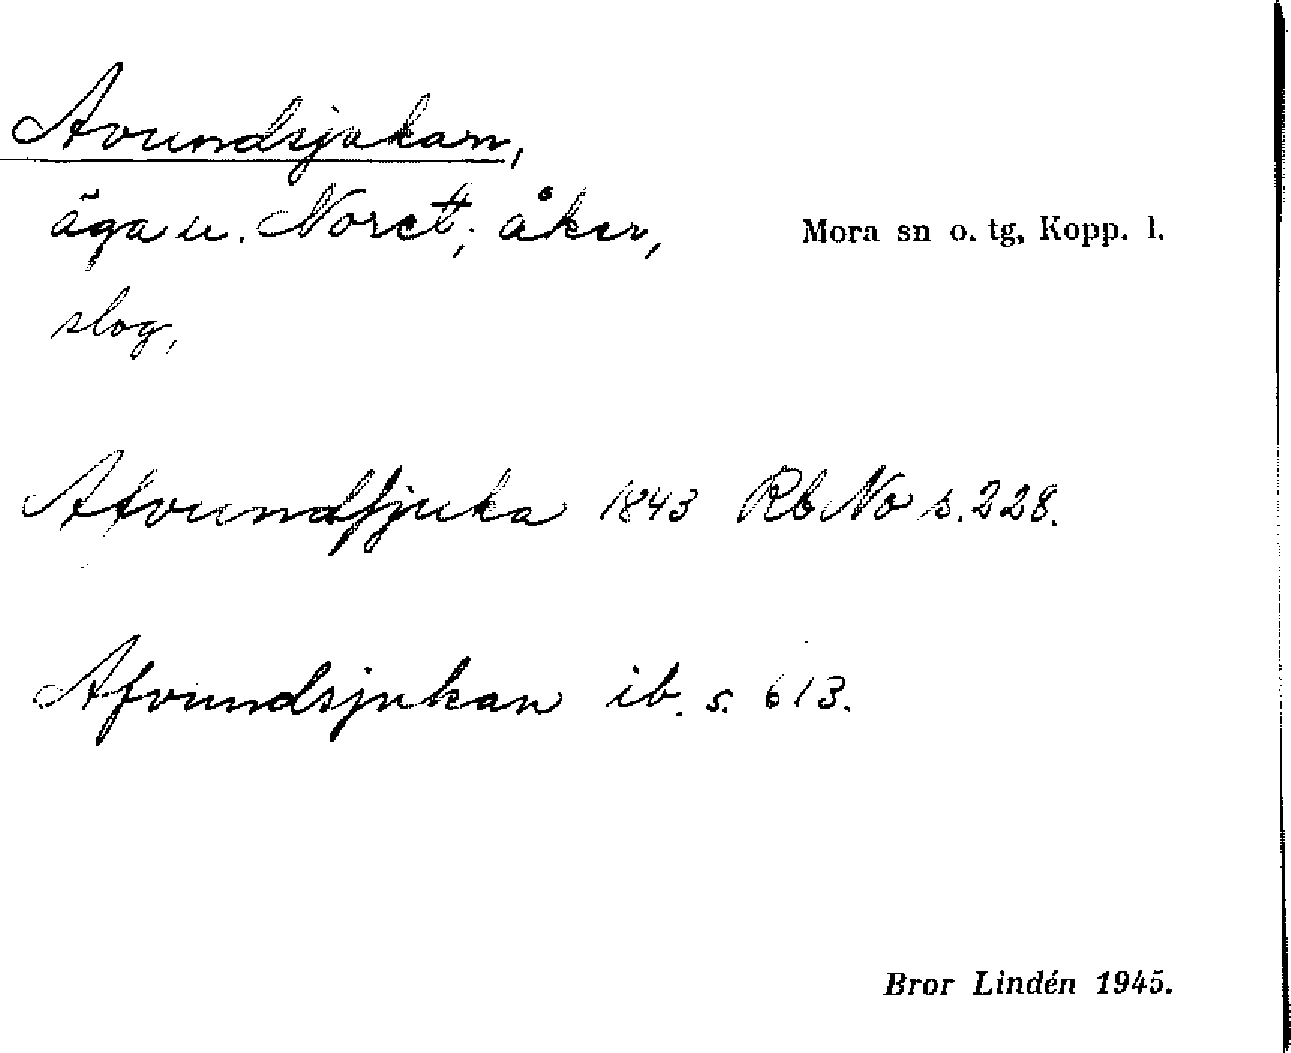 Avundsjukan,
äga u. Noret; åker,
Mora sn o. tg, Kopp. l.
slog,
Afvundsjuka 1843 Rb No s. 228.
Afvundsjukan ib. s. 613.
Bror Lindén 1945.